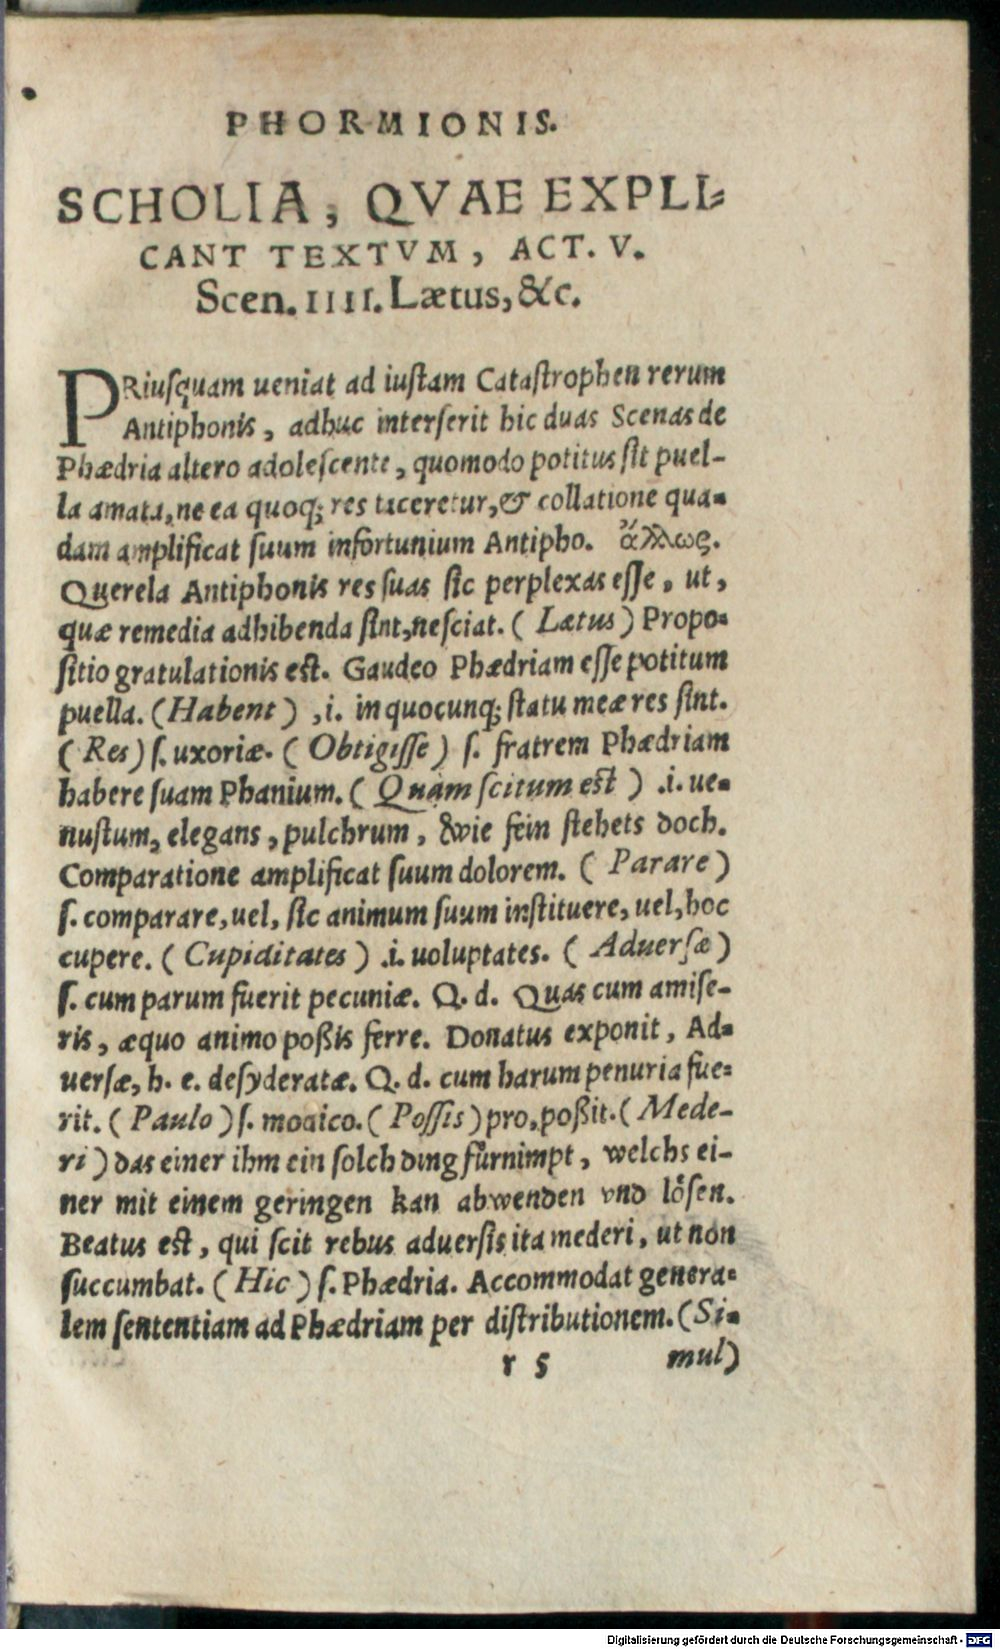 PHORMIONIS.
SCHOLIA, QVAE EXPLI-
CANT TEXTVM, ACT. V.
Scen. IIII. Lætus, &c.
PRiuſquam ueniat ad iuſtam Cataſtrophen rerum
Antiphonis, adhuc interſerit hic duas Scenas de
Phædria altero adoleſcente, quomodo potitus ſit puel-
la amata, ne ea quoq; res taceretur, & collatione qua-
dam amplificat ſuum infortunium Antipho. ἄλλως.
Querela Antiphonis res ſuas ſic perplexas eſſe, ut,
quæ remedia adhibenda ſint, neſciat. (Lætus) Propo-
ſitio gratulationis eſt. Gaudeo Phædriam eſſe potitum
puella. (Habent) .i. in quocunq; ſtatu meæ res ſint.
(Res) ſ. uxoriæ. (Obtigiſſe) ſ. fratrem Phædriam
habere ſuam Phanium. (Quàm ſcitum eſt) .i. ue-
nuſtum, elegans, pulchrum, wie fein ſtehets doch.
Comparatione amplificat ſuum dolorem. (Parare)
ſ. comparare, uel, ſic animum ſuum inſtituere, uel, hoc
cupere. (Cupiditates) .i. uoluptates. (Aduerſæ)
ſ. cum parum fuerit pecuniæ. Q. d. Quas cum amiſe-
ris, æquo animo poßis ferre. Donatus exponit, Ad-
uerſæ, h. e. deſyderatæ. Q. d. cum harum penuria fue-
rit. (Paulo) ſ. modico. (Poſſis) pro, poßit. (Mede-
ri) das einer ihm ein ſolch ding fuͤrnimpt, welchs ei-
ner mit einem geringen kan abwenden vnd loͤſen.
Beatus eſt, qui ſcit rebus aduerſis ita mederi, ut non
ſuccumbat. (Hic) ſ. Phædria. Accommodat genera-
lem ſententiam ad Phædriam per diſtributionem. (Si-
r 5 mul)
Digitalisierung gefördert durch die Deutsche Forschungsgemeinschaft - DFG